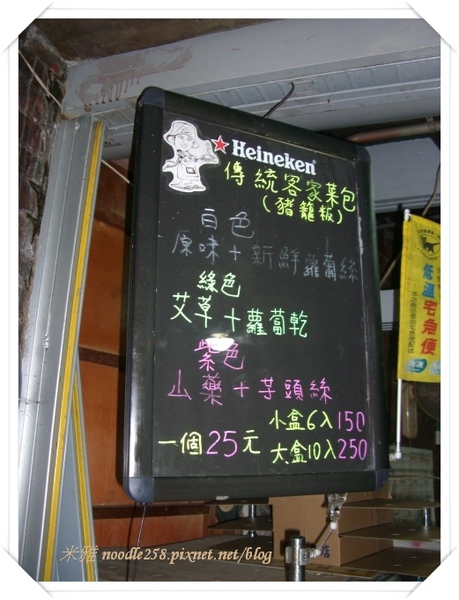 Heineken
傳統客家菜包
(豬籠粄)
白色
原味+新鮮蘿蔔絲
綠色
艾草+蘿蔔乾
紫色
山藥+芋頭絲
小盒6入150
一個25元
大盒10入250
低溫宅急便
米雅 noodle258.pixnet.net/blog